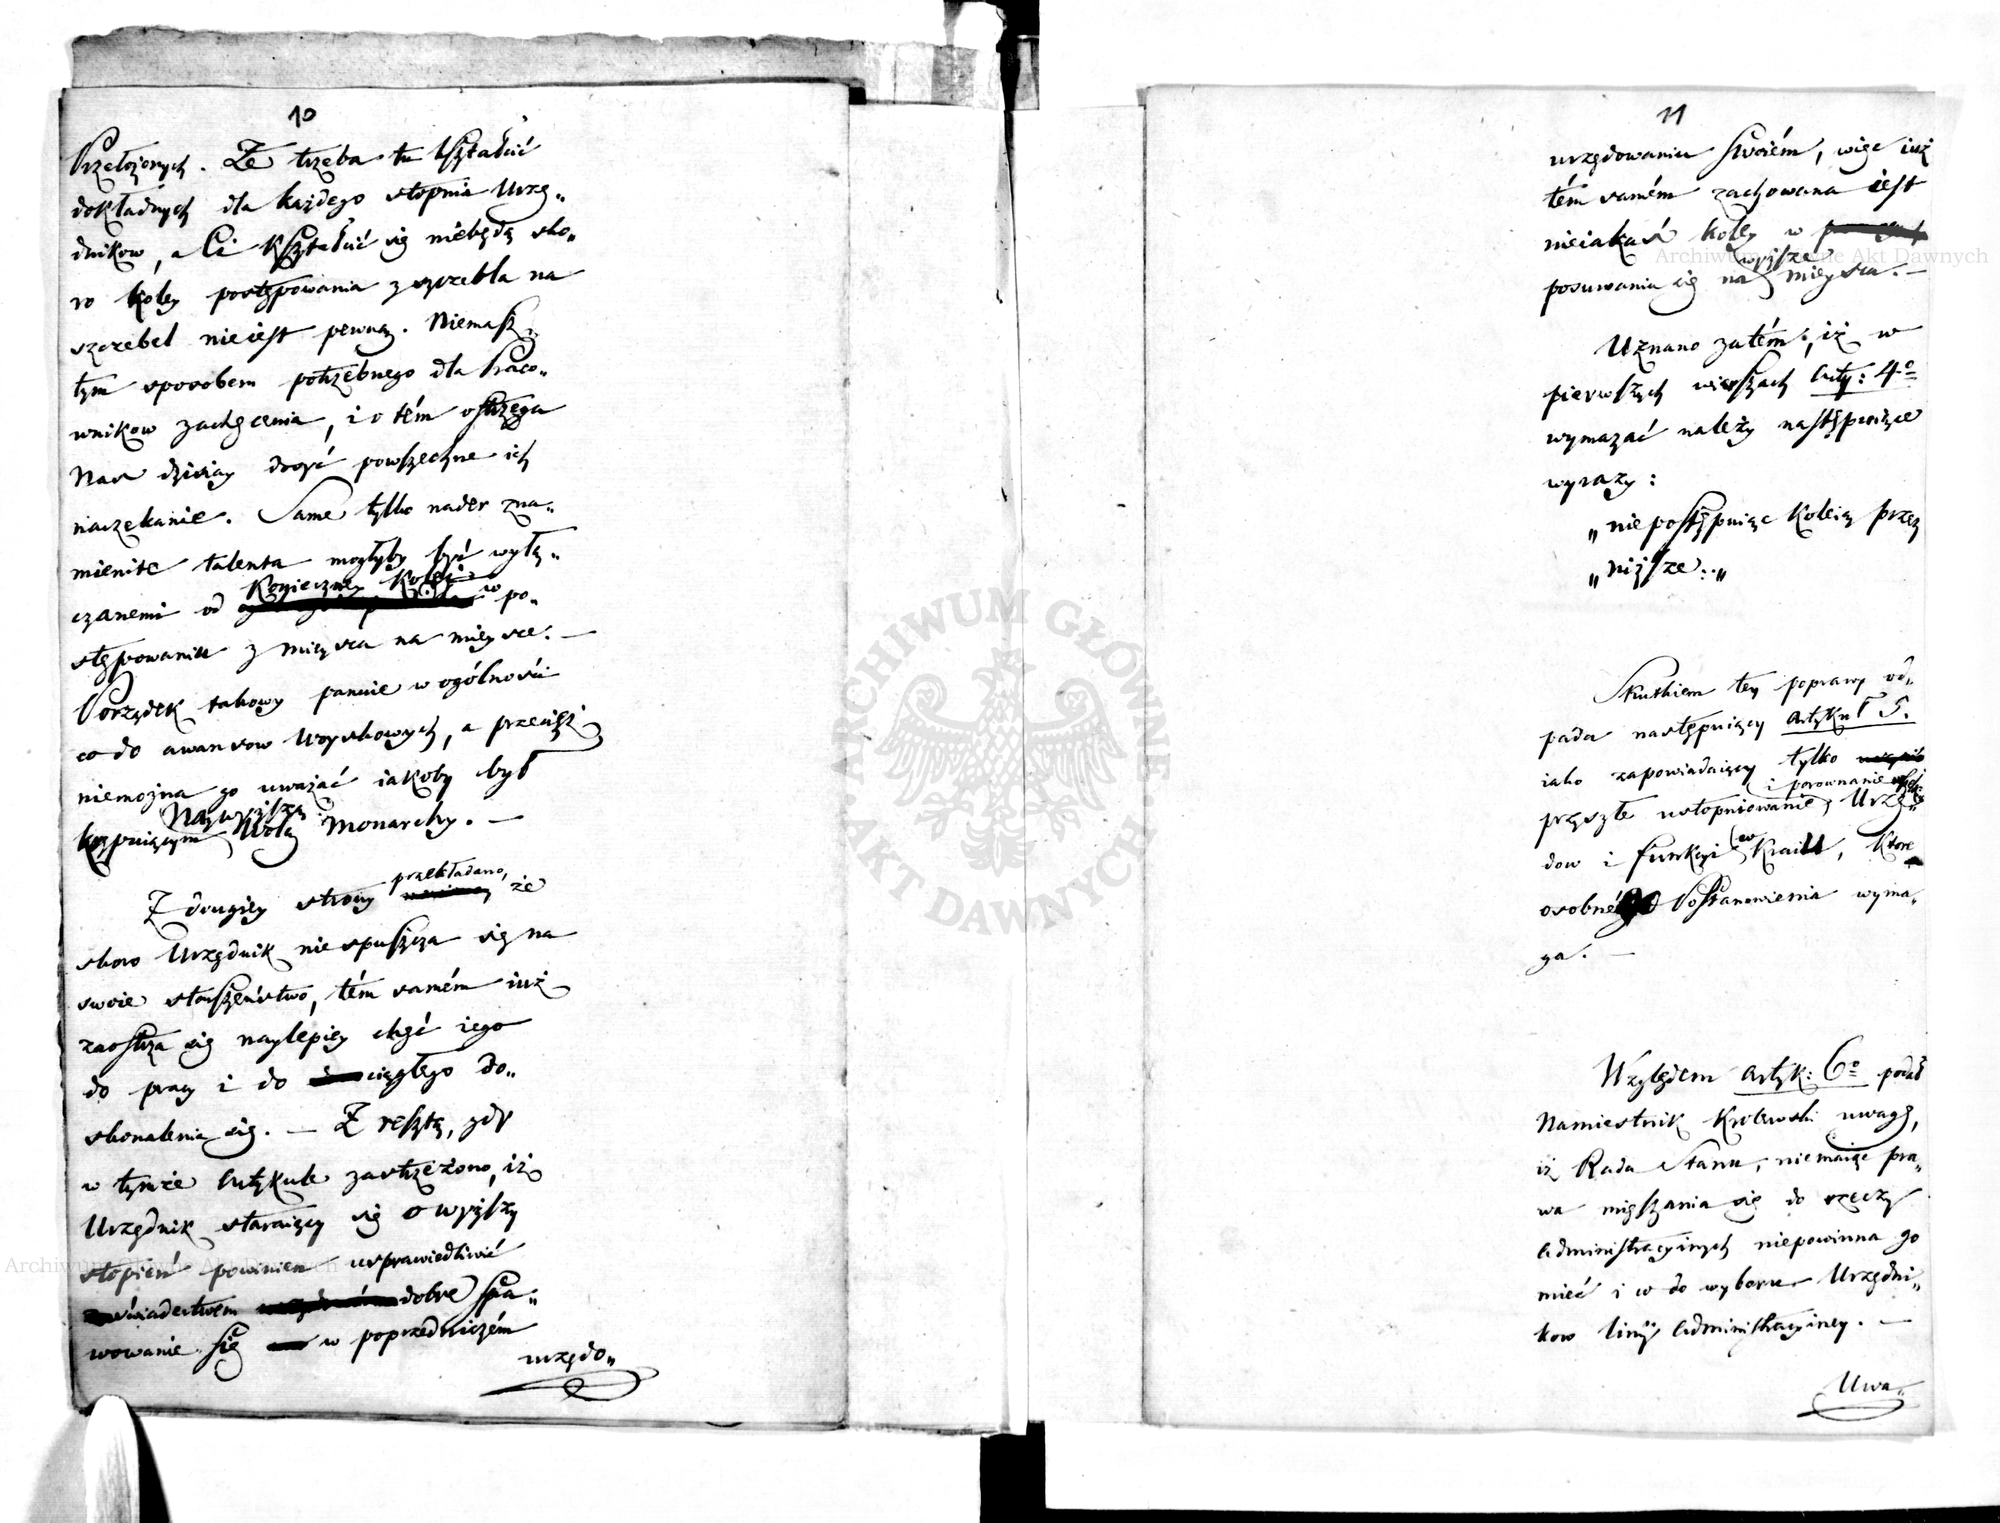 10
Przełożonych. Że trzeba tu kształcić
dokładnych dla każdego stopnia Urzę„
dnikow, a Ci kształcić się niebędą sko„
ro koley postępowania z szczebla na
szczebel nieiest pewną. Niemasz
tym sposobem potrzebnego dla Praco„
wnikow zachęcenia, i o tém ostrzega
Nas dzisiay dosyć powszechne ich
naczekanie. Same tylko nader zna„
mienite talenta mogłyby być wyłą„
czanemi od konieczney kolei w po„
stępowaniu z mieysca na mieysce. —
Porządek takowy panuie w ogólności
co do awansow Woyskowych, a przecięż
niemożna go uważać iakoby był
krępuiącym Naywyższą Wolą Monarchy. —
Z drugiey strony przekładano, że
skoro Urzędnik nie spuszcza się na
swoie starszeństwo, tém samém iuż
zaostrza się naylepiey chęć iego
do pracy i do ciągłego do„
skonalenia się. — Z resztą, gdy
w tymże Artykule zastrzeżono, iż
Urzędnik staraiący się o wyższy
stopień powinien usprawiedliwić
świadectwem dobre spra„
wowanie się w poprzedniczém
urzędo„
11
urzędowaniu swoiém, więc iuż
tém samém zachowana iest
nieiakaś koley w
posuwaniu się na wyższe mieysca. —
Uznano zatém, iż w
pierwszych wierszach Arty: 4º
wymazać należy następuiące
wyrazy:
„nie postępuiąc koleią przez
„niższe„
Skutkiem tey poprawy od„
pada następuiący Artykuł 5.
iako zapowiadaiący tylko
przyszłe ustopniowanie i porownanie Urzę„
dow i funkcyi w Kraiu, ktore
osobnégo Postanowienia wyma„
ga. —
Względem Artyk: 6º podał
Namiestnik Krolewski uwagę,
iż Rada Stanu, niemaiąc pra„
wa mięszania się do rzeczy
administracyinych niepowinna go
mieć i w do wyboru Urzędni„
kow linij administracyiney. —
Uwa„
Archiwum Główne Akt Dawnych
Archiwum Główne Akt Dawnych
ARCHIWUM GŁÓWNE AKT DAWNYCH